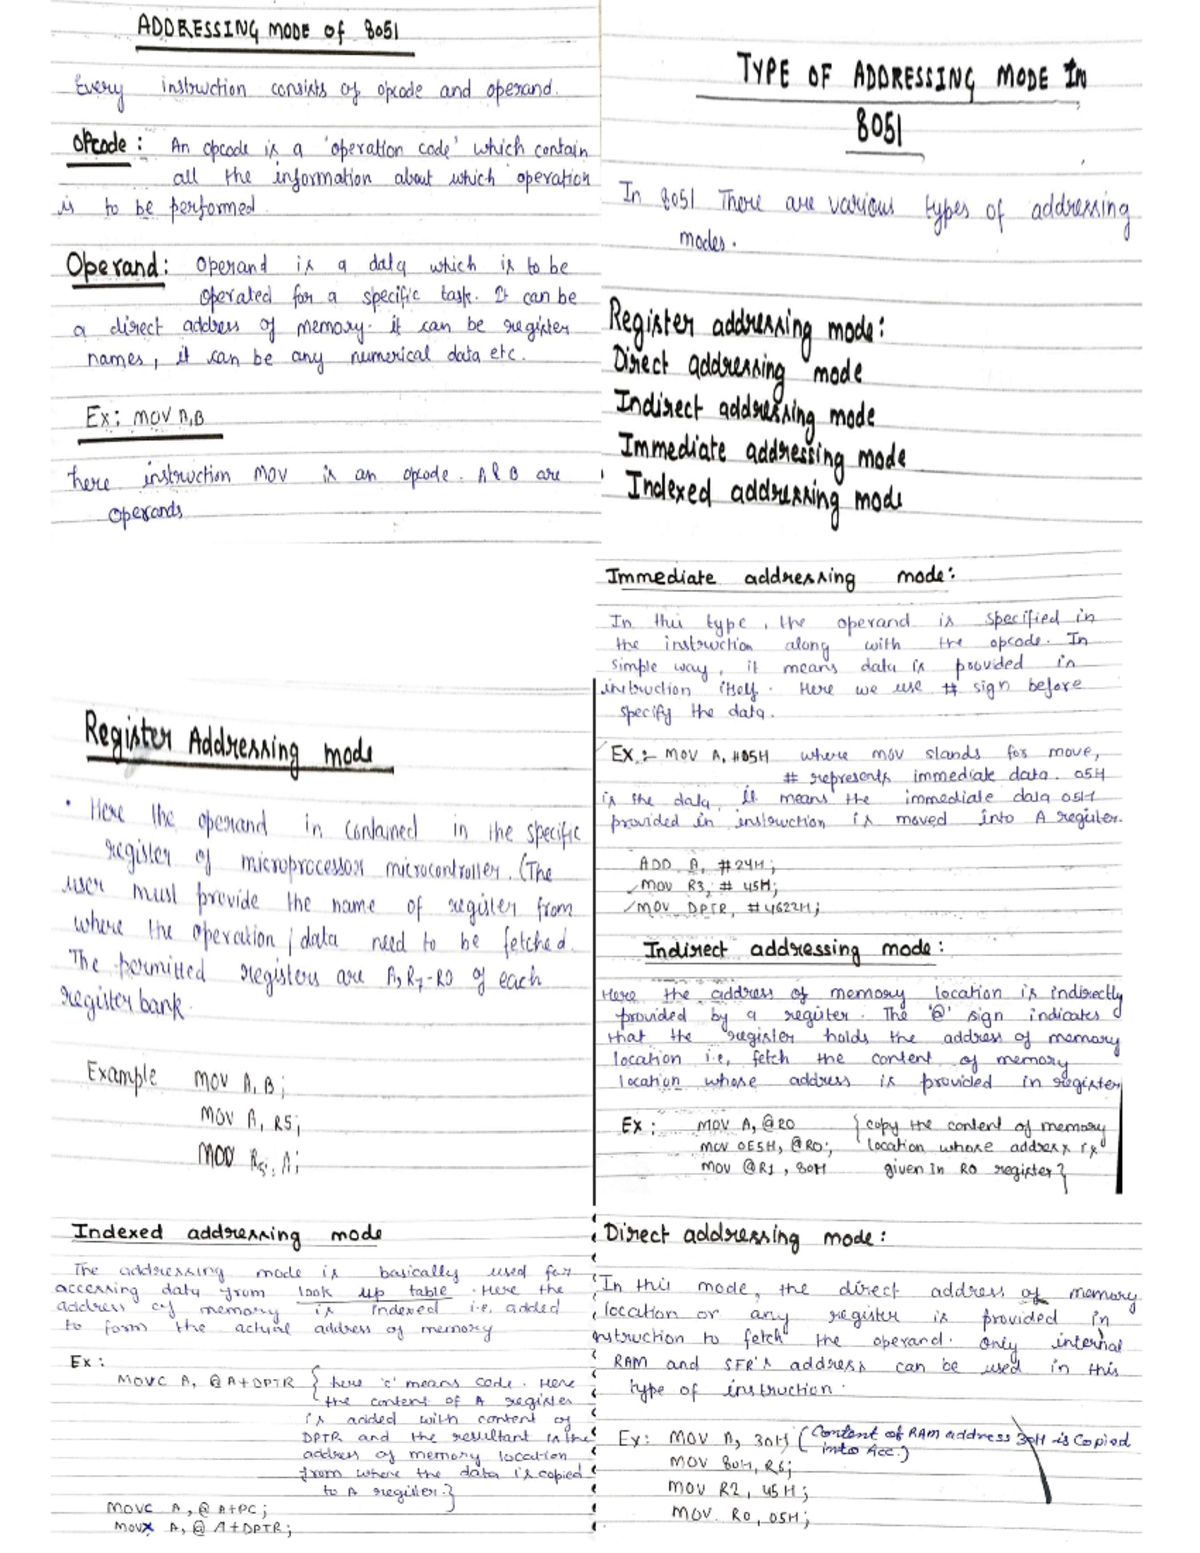 ADDRESSING MODE of 8051
Every instruction consists of opcode and operand.
Opcode : An opcode is a 'operation code' which contain
all the information about which operation
is to be performed.
Operand: Operand is a data which is to be
operated for a specific task. It can be
a direct address of memory. it can be register
names, it can be any numerical data etc.
Ex: MOV A,B
here instruction MOV is an opcode. A & B are
operands
TYPE OF ADDRESSING MODE IN
8051
In 8051 There are various types of addressing
modes.
Register addressing mode:
Direct addressing mode
Indirect addressing mode
Immediate addressing mode
Indexed addressing mode
Register Addressing mode
• Here the operand in contained in the specific
register of microprocessor microcontroller. (The
user must provide the name of register from
where the operation/data need to be fetched.
The permitted registers are A, R7-R0 of each
register bank.
Example MOV A, B;
MOV A, R5;
MOV R5, A;
Immediate addressing mode:
In this type, the operand is specified in
the instruction along with the opcode. In
simple way, it means data is provided in
instruction itself. Here we use # sign before
specify the data.
EX :- MOV A, #05H where mov stands for move,
# represents immediate data. 05H
is the data, it means the immediate data 05H
provided in instruction is moved into A register.
ADD A, #24H;
MOV R3, # 45H;
MOV DPTR, #4622H;
Indirect addressing mode:
Here the address of memory location is indirectly
provided by a register. The '@' sign indicates
that the register holds the address of memory
location i.e, fetch the content of memory
location whose address is provided in register
Ex : MOV A, @R0 {copy the content of memory
MOV 0E5H, @R0; location whose address is
MOV @R1, 80H given In R0 register}
Indexed addressing mode
The addressing mode is basically used for
accessing data from look up table. Here the
address of memory is Indexed i.e, added
to form the actual address of memory
Ex :
MOVC A, @A+DPTR {here 'c' means code. Here
the content of A register
is added with content of
DPTR and the resultant is the
address of memory location
from where the data is copied
to A register.}
MOVC A, @ A+PC;
MOVX A, @ A+DPTR;
Direct addressing mode:
In this mode, the direct address of memory
location or any register is provided in
instruction to fetch the operand. Only internal
RAM and SFR's address can be used in this
type of instruction.
Ex: MOV A, 30H (Content of RAM address 30H is Copied
into Acc.)
MOV 80H, R6;
MOV R2, 45H;
MOV R0, 05H;